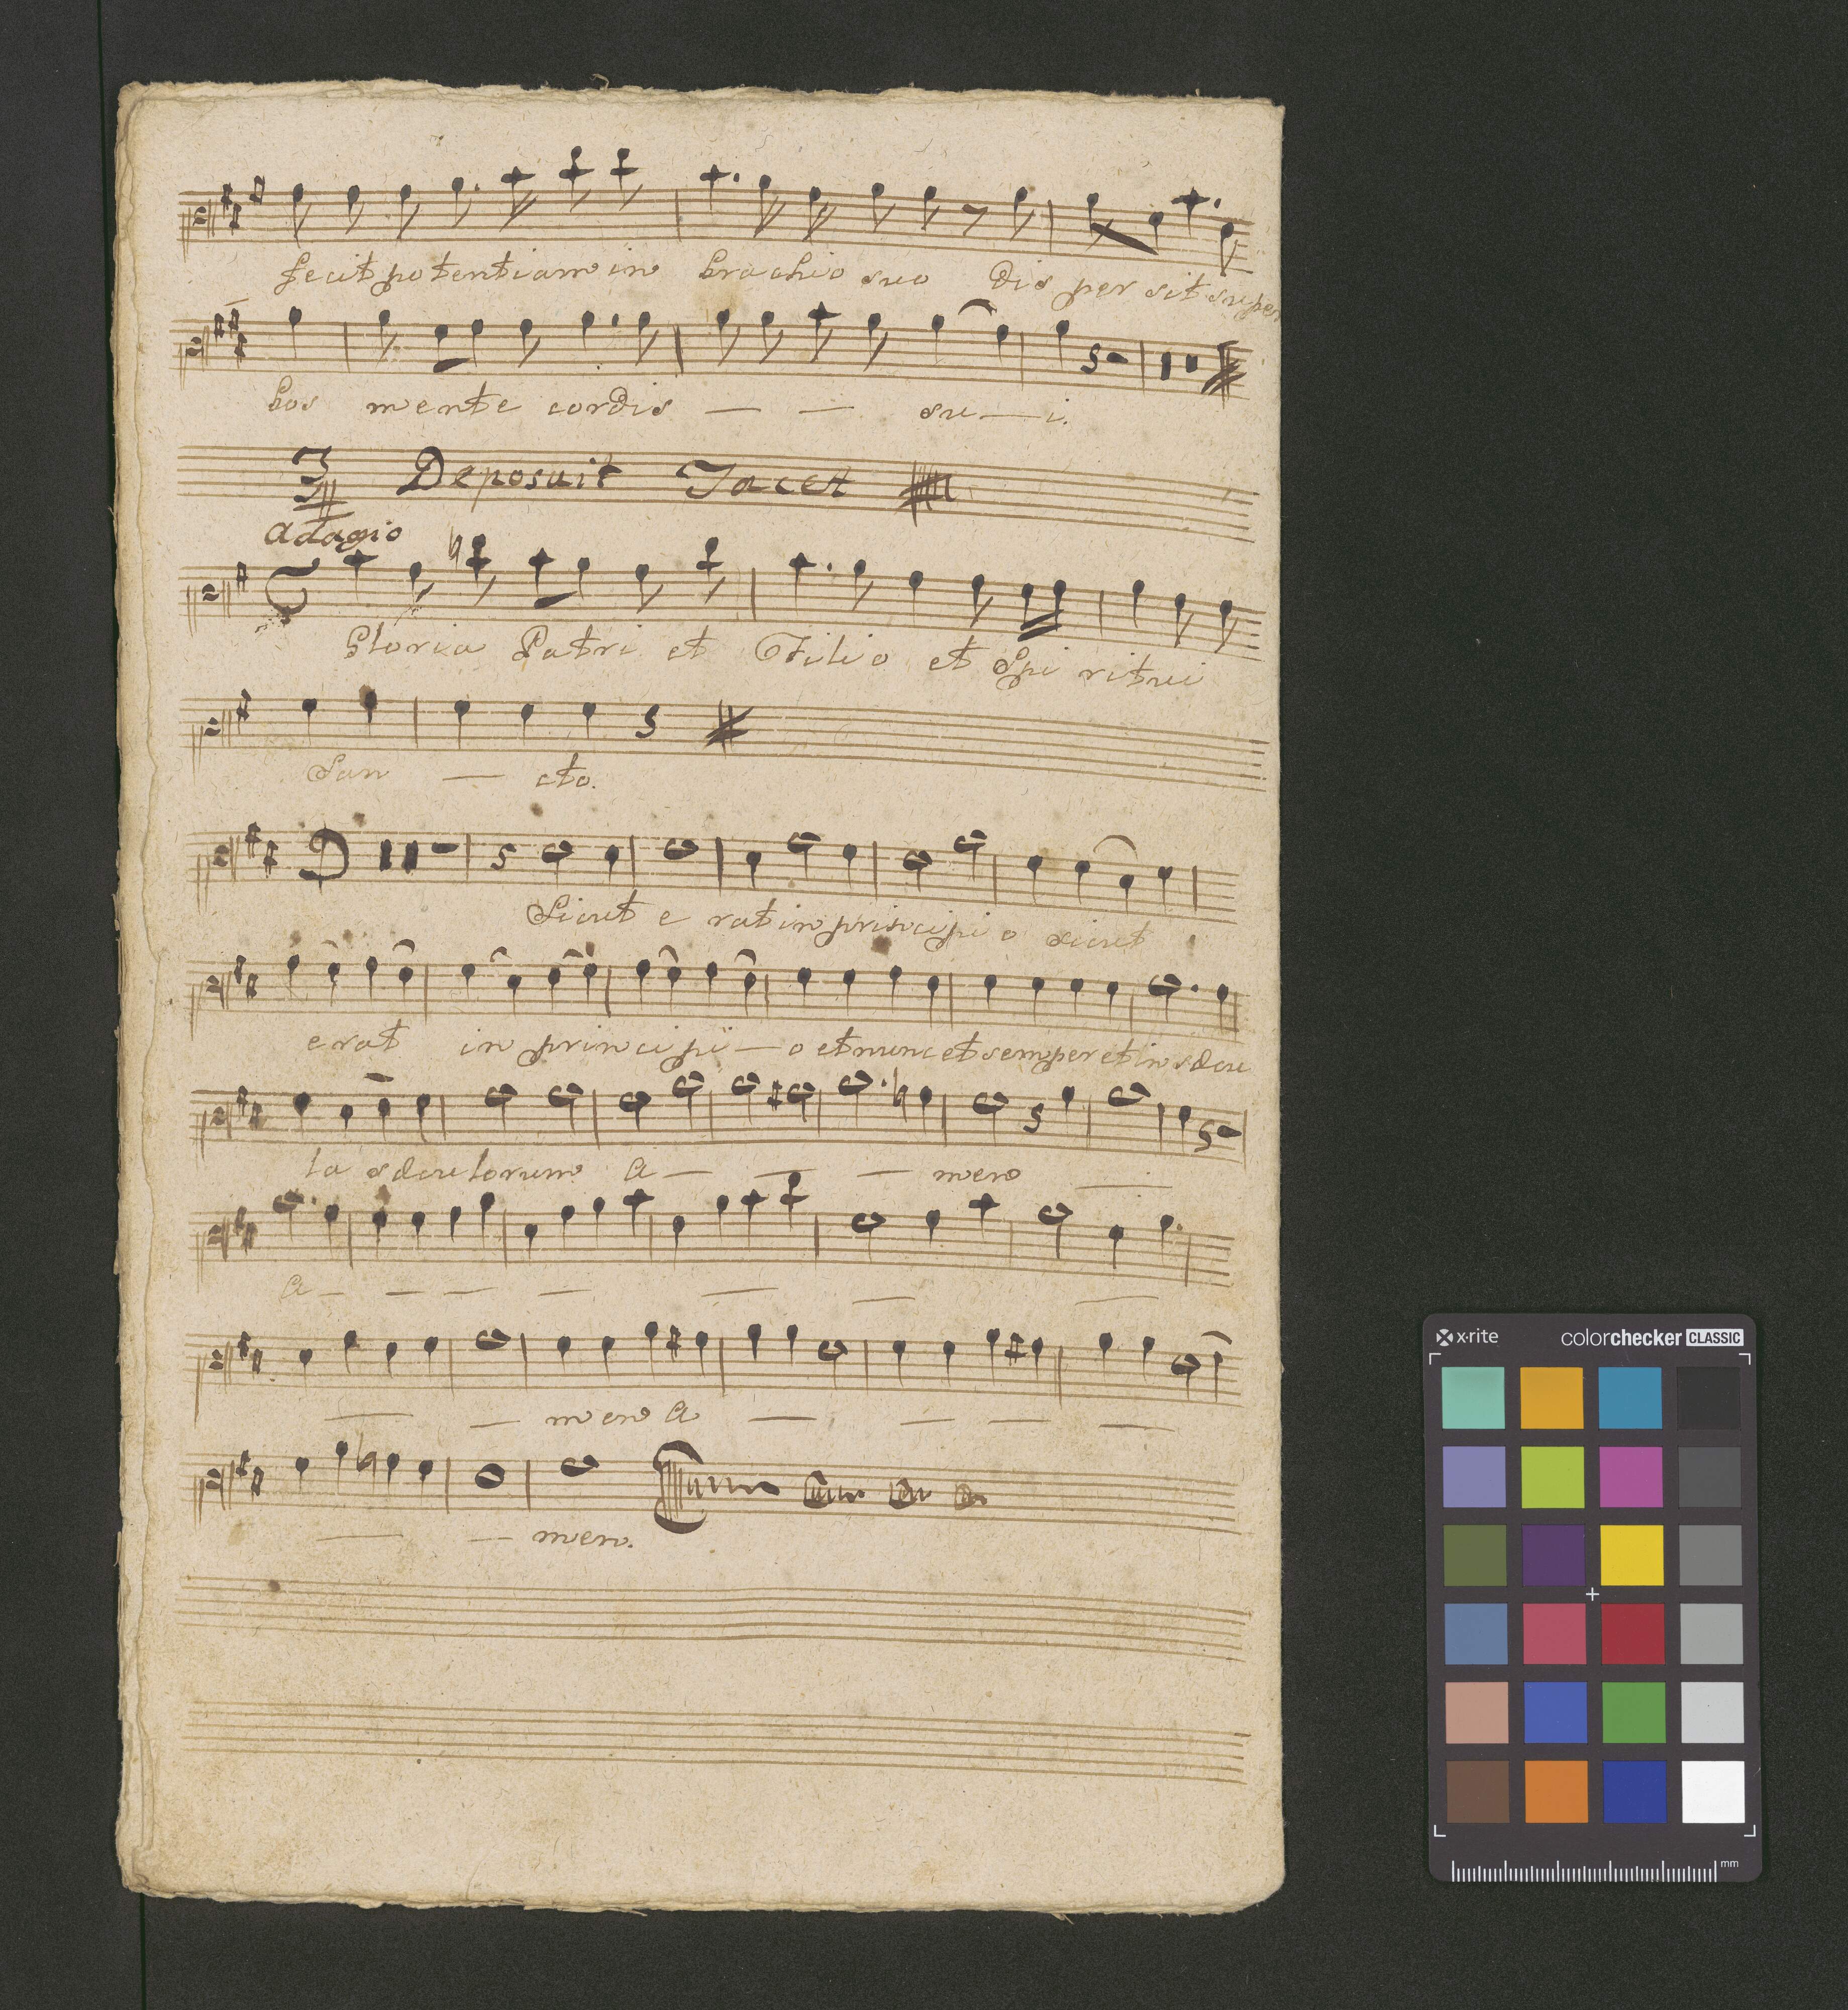 fecit potentiam in brachio suo Dis per sit super
bos mente cordis — — su — i.
3/4 Deposuit Tacet
Adagio
Gloria Patri et Filio et Spi ritui
San — cto.
Sicut e rat in principi o sicut
erat in principi — o et nunc et semper et in sæcu
la sæculorum A — — — men —
A — — — — — — —
— — men A — — — —
— — men.
x·rite colorchecker CLASSIC
mm